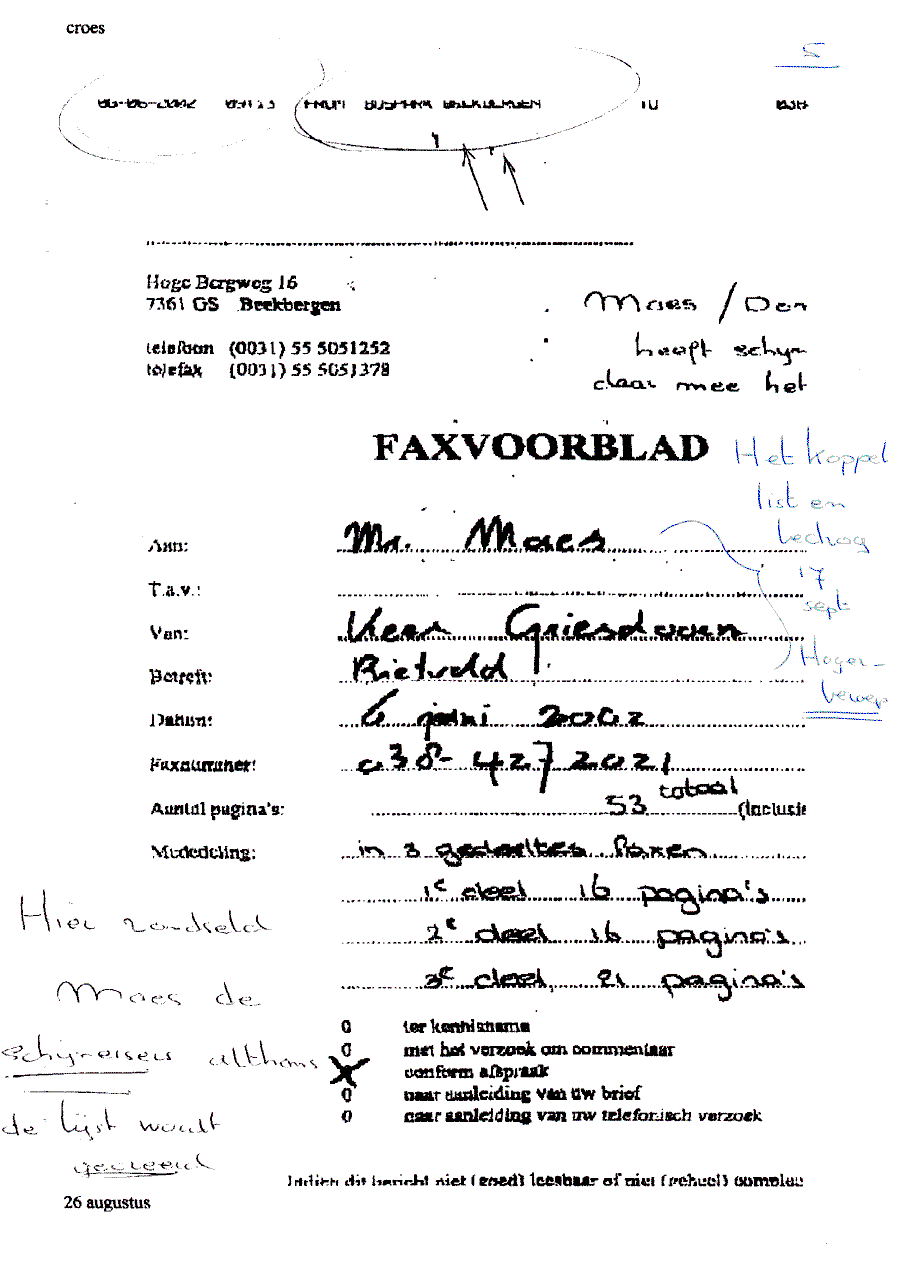 croes
5
06-06-2002 09:13 FROM BUSPARK BEEKBERGEN TO 038
Hoge Bergweg 16
7361 GS Beekbergen
telefoon (0031) 55 5051252
telefax (0031) 55 5051378
Moes / Den
heeft schyn
daar mee het
FAXVOORBLAD
Het koppel
list en
bedrog
17
sept
Hoger
beroep
Aan: Mr. Moes
T.a.v.:
Van: Veen Griesdoorn
Betreft: Rietveld
Datum: 6 juni 2002
Faxnummer: 038-4272021
Aantal pagina's: 53 totaal (inclusie
Mededeling: in 3 gedeeltes faxen
1e deel 16 pagina's
2e deel 16 pagina's
3e deel, 21 pagina's
Hier
Moes de
schijneisers althans
de lijst wordt
gecreeerd
0 ter kennisname
0 met het verzoek om commentaar
0 conform afspraak
0 naar aanleiding van uw brief
0 naar aanleiding van uw telefonisch verzoek
Indien dit bericht niet (goed) leesbaar of niet (geheel) complee
26 augustus